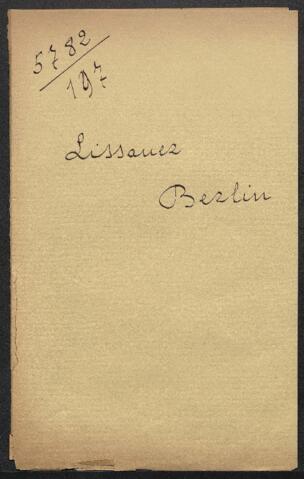 5782
197
Lissauer
Berlin